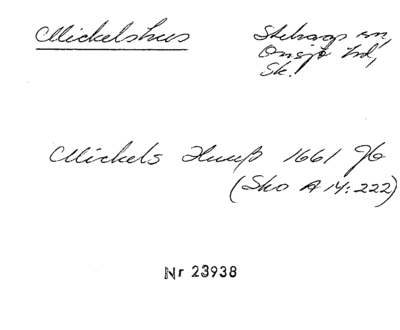 Mickelshus
Stehags sn,
Onsjö hd,
Sk.
Mickels Huuß 1661 Jb
(Sko A 14:222)
Nr 23938